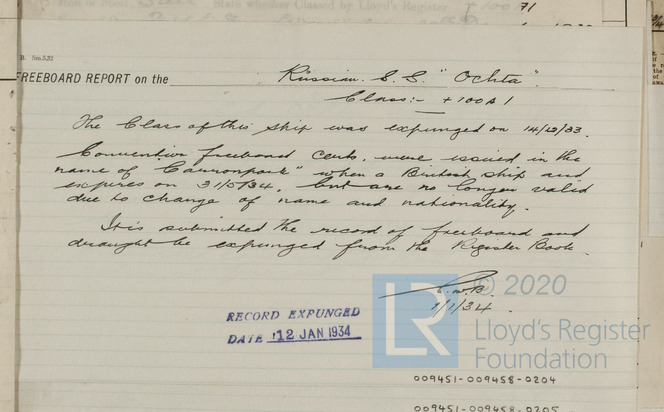 State whether Classed by Lloyd's Register + 100A1
71
B. 5m.5,32
FREEBOARD REPORT on the Russian S.S. "Ochta".
Class:- +100A1
The Class of this ship was expunged on 14/12/33.
Convention freeboard certs. were issued in the
name of Carronpark" when a British ship and
expires on 31/5/34, but are no longer valid
due to change of name and nationality.
It is submitted the record of freeboard and
draught be expunged from the Register Book.
1/1/34.
RECORD EXPUNGED
DATE 12 JAN 1934
© 2020
LR
Lloyd's Register
Foundation
009451-009458-0204
009451-009458-0205